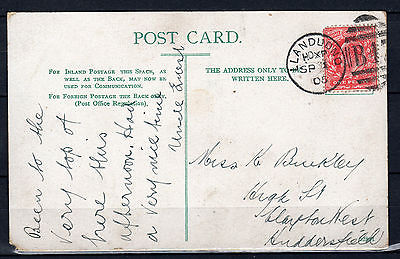 POST CARD.
FOR INLAND POSTAGE THIS SPACE, AS
WELL AS THE BACK, MAY NOW BE
USED FOR COMMUNICATION.
FOR FOREIGN POSTAGE THE BACK ONLY.
(Post Office Regulation).
THE ADDRESS ONLY TO
WRITTEN HERE.
LLANDUDNO
SP
05
Been to the
very top of
here this
afternoon. Had
a very nice time
Uncle Ernest
Miss K Buckley
High St
Clayton West
Huddersfield